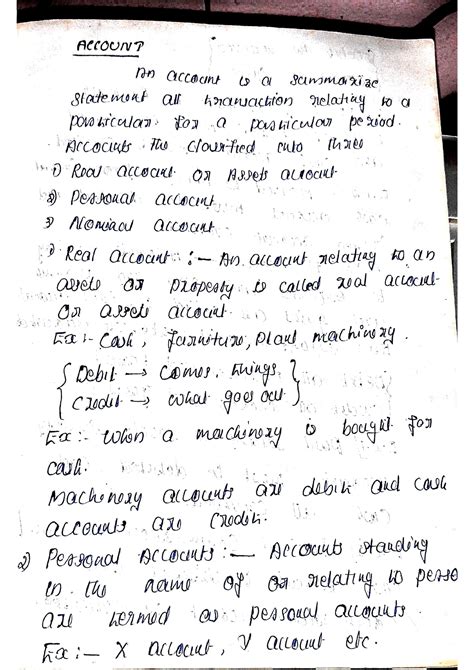 ACCOUNT
An account is a summarize
statement all transaction relating to a
particular for a particular period.
Accounts the classified into three
1) Real account or Assets account
2) Personal account
3) Nominal account
1) Real account :- An account relating to an
assets or property is called real account
or assets account.
Ex:- Cash, furniture, plant machinery.
Debit → comes. things.
Credit → what goes out
Ex:- When a machinery is bought for
cash.
Machinery accounts are debit and cash
accounts are credit.
2) Personal Accounts :- Accounts standing
in the name of or relating to perso
are termed as personal accounts.
Ex:- X account, Y account etc.